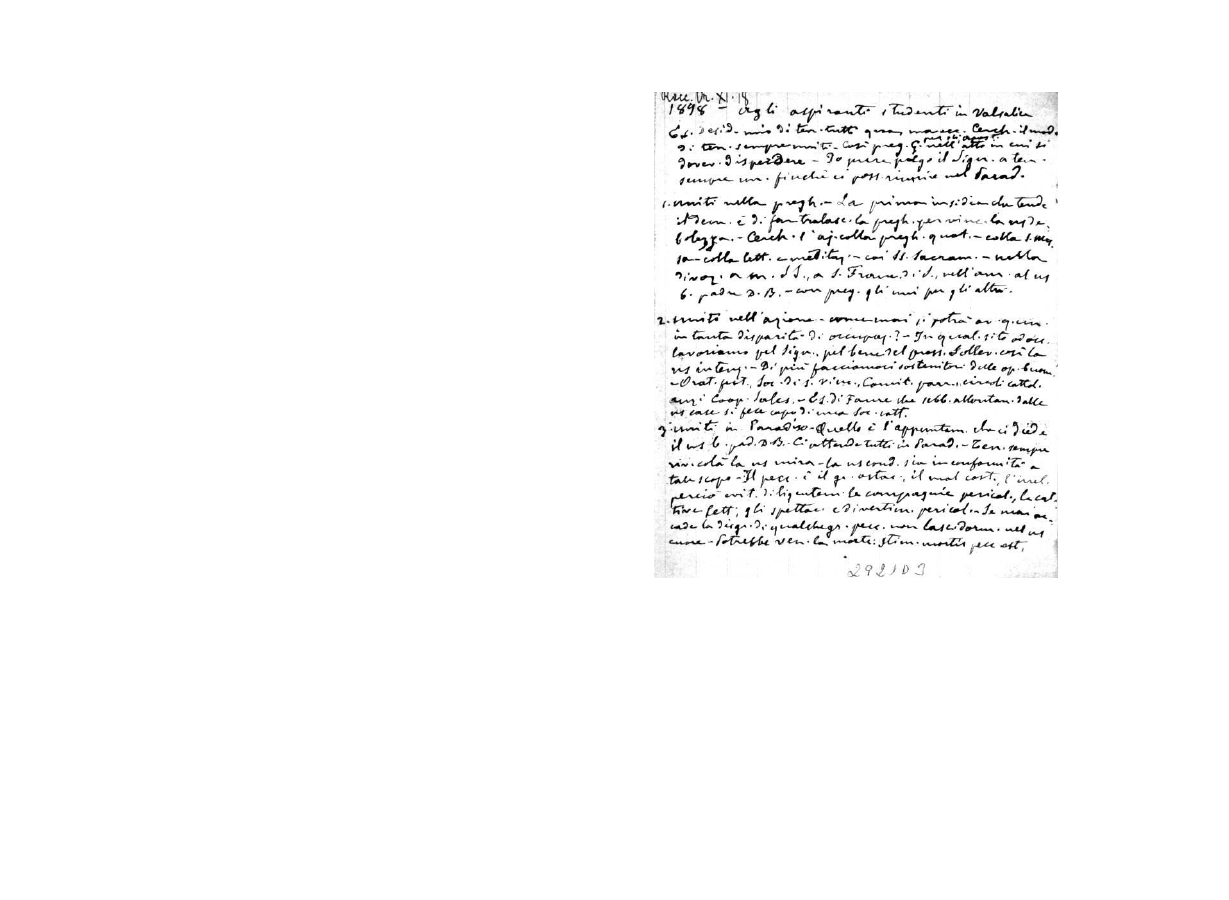 1898 – Agli aspiranti studenti in Valsalice
Es. desid. mio di ten. tutti Cerch. il mod.
di ten. sempre uniti – Così preg. G. nell'atto in cui si
dover. disperdere – Io pure prego il Sign. a ten.
sempre un. finchè ci poss. riunire nel Parad.
1. Uniti nella pregh. – La prima insidia che tende
il dem. è di far tralasc. la pregh. per vinc. la
bolezza. – Cerch. l'aj. colla pregh. quot. – colla S. Mes
sa – colla lett. e meditaz. – coi SS. Sacram. – nella
divoz. a M. SS., a S. Franc. di S., nell'am. al ns
b. padre D. B. – con preg. gli uni per gli altri.
2. Uniti nell'azione – come mai si potrà av. q. un.
in tanta disparità di occupaz.? – In qual. sito
lavoriamo pel Sign. pel bene del pross. così la
ns intenz. – Di più facciamoci sostenitori delle op. buone
– Orat. fest., Soc. di S. Vinc., Comit. parr., circoli cattol.
anzi Coop. Sales. – Es. di Faure che sebb. allontan. dalle
ns case si fece capo di una Soc. catt.
3. Uniti in Paradiso – Quello è l'appuntam. che ci diede
il ns b. pad. D. B. – Ci attende tutti in Parad. – Ten. sempre
rivi. colà la ns mira – la ns cond. sia in conformità a
tale scopo – Il pecc. è il gr. ostac., il mal cost.,
perciò evit. diligentem. le compagnie pericol., le cat-
tive lett., gli spettac. e divertim. pericol. – Se mai ac-
cade la disgr. di qualche gr. pecc. non lasc. dorm. nel ns
cuore – Potrebbe ven. la morte: stim. mortis pecc. est.
292103